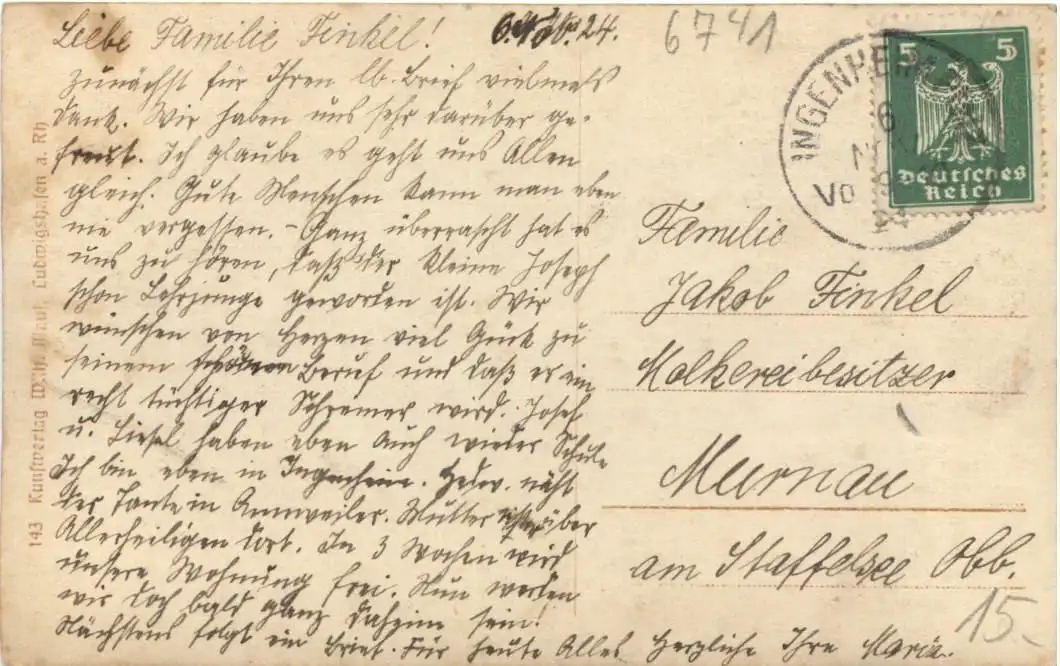 Liebe Familie Finkel! 6. Nov. 24.
6741
zunächst für Ihren lb. Brief vielmals
Dank. Wir haben uns sehr darüber ge-
freut. Ich glaube es geht uns Allen
gleich. Gute Menschen kann man eben
nie vergessen. - Ganz überrascht hat es
uns zu hören, daß der kleine Joseph
schon Lehrjunge geworden ist. Wir
wünschen von Herzen viel Glück zu
seinem schönen Beruf und daß er ein
recht tüchtiger Schreiner wird. Josef
u. Liesel haben eben auch wieder Schule
Ich bin eben in Ingenheim. Hedw. näht
der Tante in Annweiler. Mutter ist über
Allerheiligen dort. In 3 Wochen wird
unsere Wohnung frei. Nun werden
wir doch bald ganz daheim sein!
Nächstens folgt ein Brief. Für heute Alles Herzliche Ihre Maria.
INGENHEIM
6
NOV
24
5 5
Deutsches
Reich
Familie
Jakob Finkel
Molkereibesitzer
Murnau
am Staffelsee Obb.
15.-
143 Kunstverlag Wilh. Ludwigshafen a. Rh